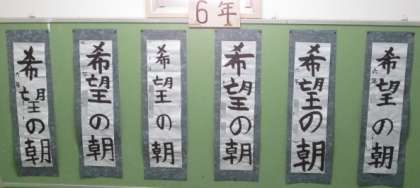 6年
希望の朝
希望の朝
希望の朝
希望の朝
希望の朝
希望の朝